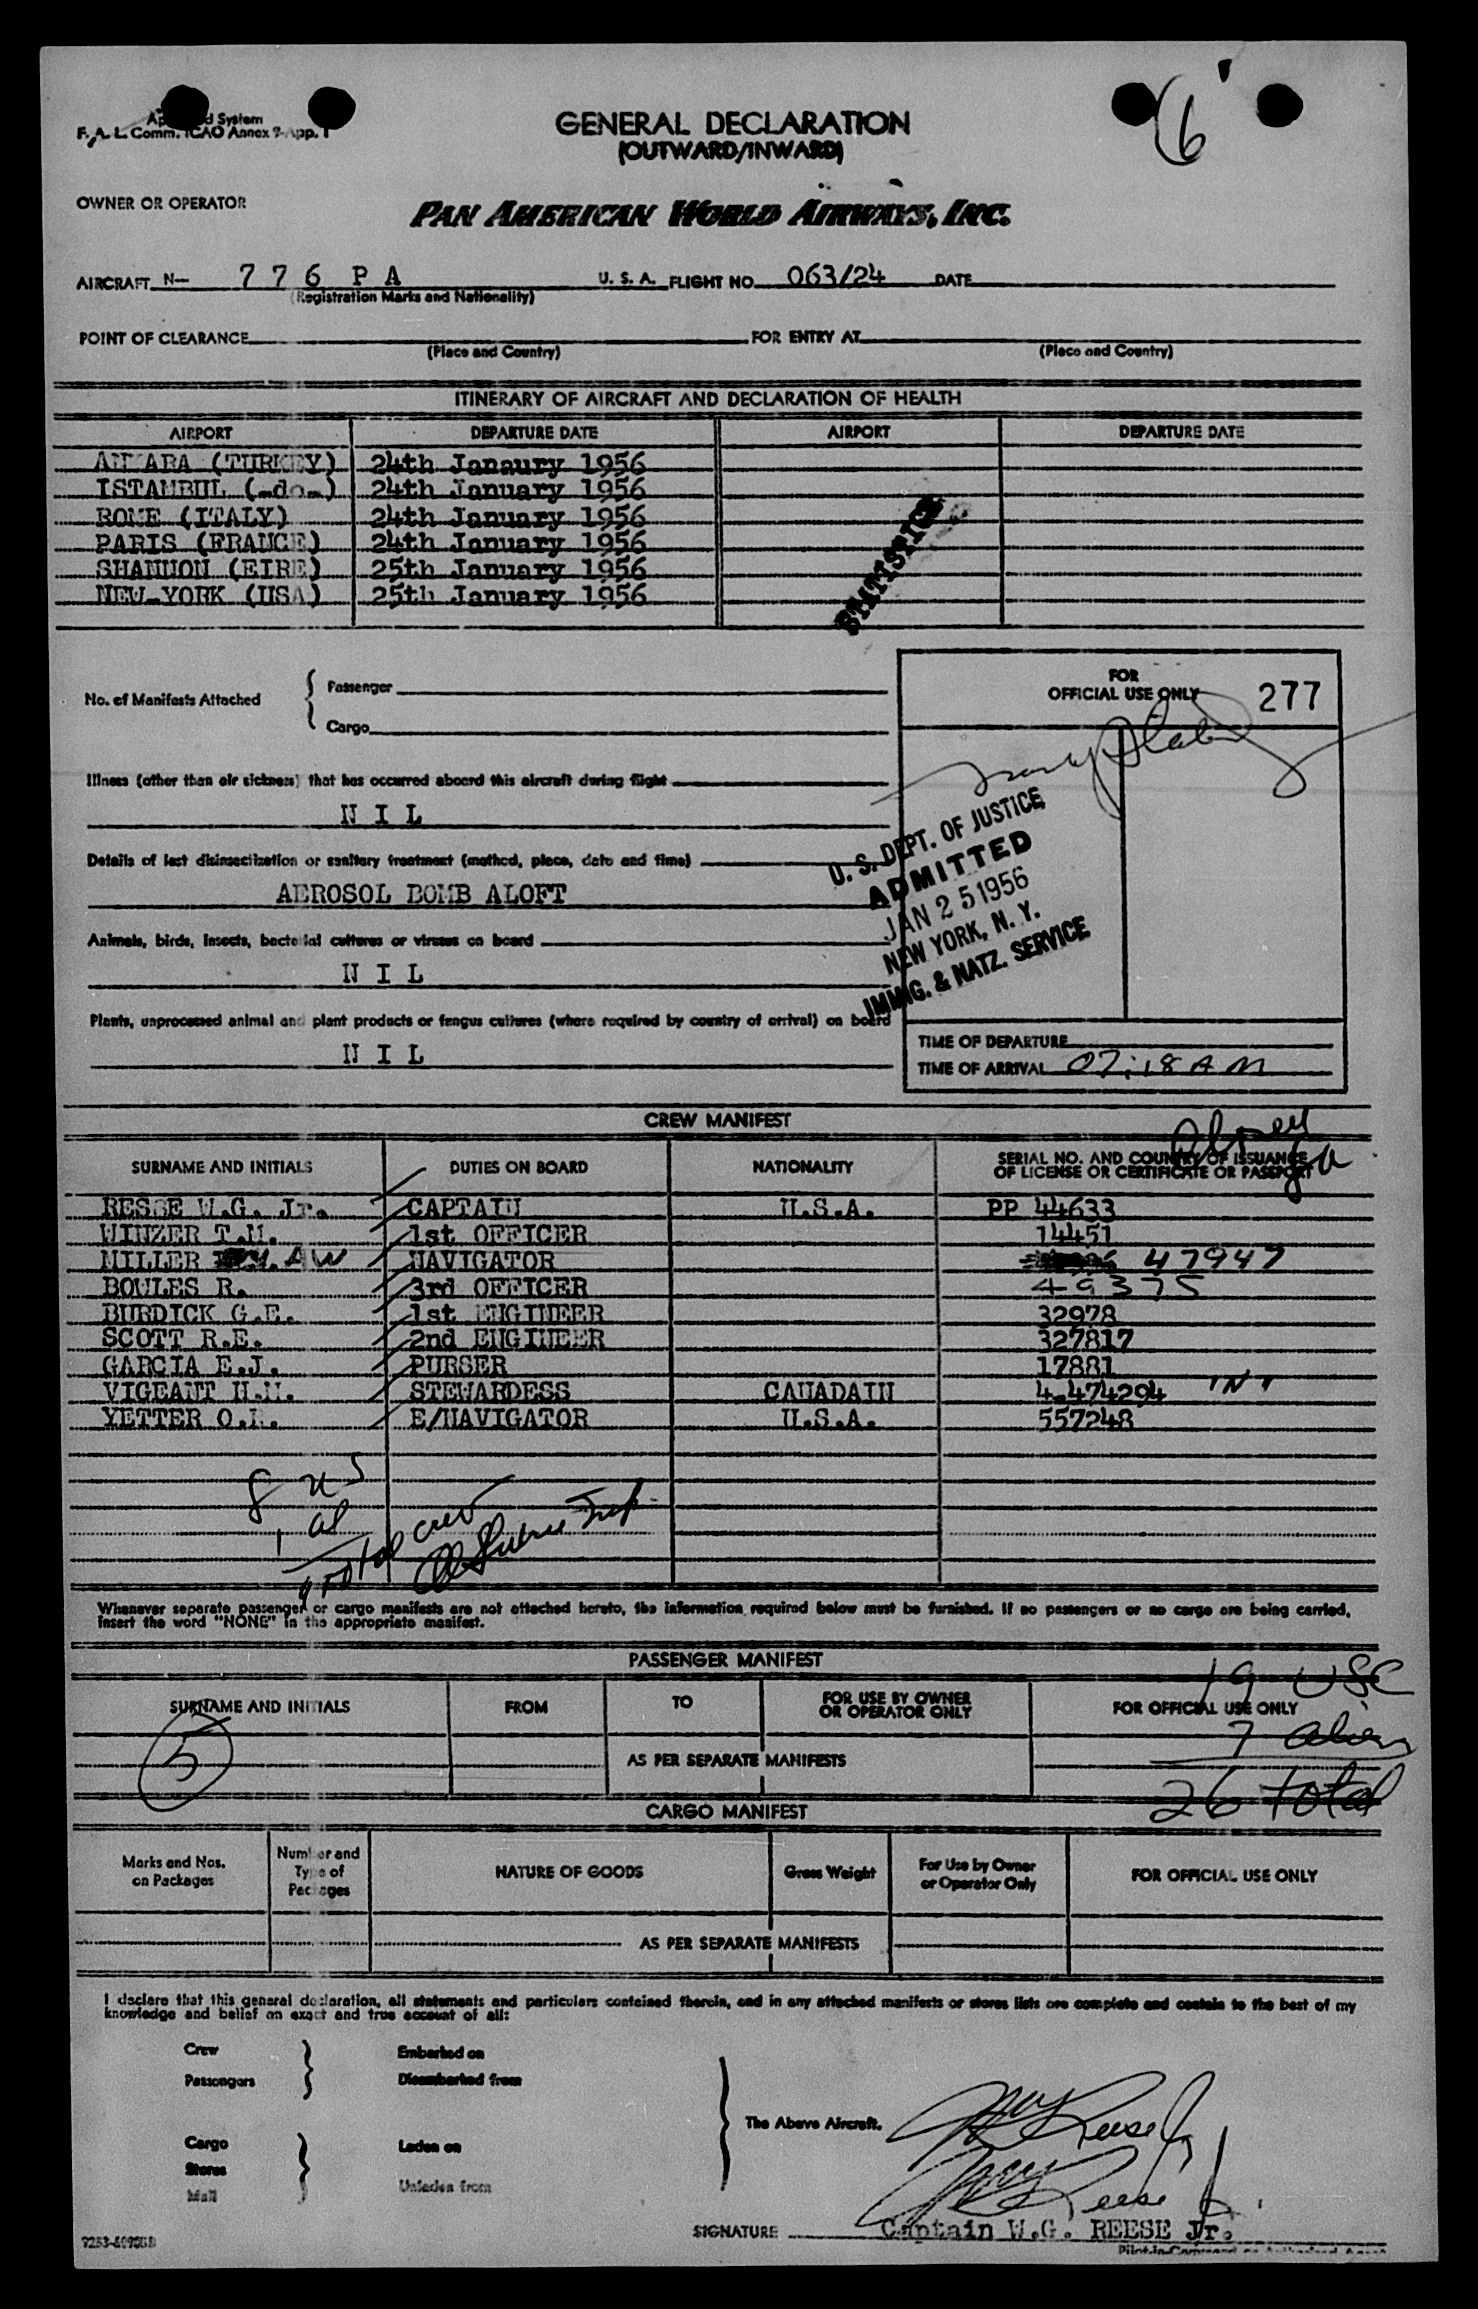 F. A. L. Comm. ICAO Annex 9-App. 1
GENERAL DECLARATION
(OUTWARD/INWARD)
6
OWNER OR OPERATOR
PAN AMERICAN WORLD AIRWAYS, INC.
AIRCRAFT N- 7 7 6 P A U. S. A. FLIGHT NO. 063/24 DATE
(Registration Marks and Nationality)
POINT OF CLEARANCE FOR ENTRY AT
(Place and Country) (Place and Country)
ITINERARY OF AIRCRAFT AND DECLARATION OF HEALTH
AIRPORT DEPARTURE DATE AIRPORT DEPARTURE DATE
ANKARA (TURKEY) 24th Janaury 1956
ISTAMBUL (-do-) 24th January 1956
ROME (ITALY) 24th January 1956
PARIS (FRANCE) 24th January 1956
SHANNON (EIRE) 25th January 1956
NEW-YORK (USA) 25th January 1956
STATISTICS
No. of Manifests Attached
Passenger
Cargo
FOR
OFFICIAL USE ONLY
277
Illness (other than air sickness) that has occurred aboard this aircraft during flight
N I L
Details of last disinsectization or sanitary treatment (method, place, date and time)
AEROSOL BOMB ALOFT
Animals, birds, insects, bacterial cultures or viruses on board
N I L
Plants, unprocessed animal and plant products or fungus cultures (where required by country of arrival) on board
N I L
U. S. DEPT. OF JUSTICE
ADMITTED
JAN 2 5 1956
NEW YORK, N. Y.
IMMIG. & NATZ. SERVICE
TIME OF DEPARTURE
TIME OF ARRIVAL 07:18 AM
CREW MANIFEST
SURNAME AND INITIALS DUTIES ON BOARD NATIONALITY SERIAL NO. AND COUNTRY OF ISSUANCE
OF LICENSE OR CERTIFICATE OR PASSPORT
RESSE W.G. Jr. CAPTAIN U.S.A. PP 44633
WINZER T.M. 1st OFFICER 14451
MILLER AW NAVIGATOR 47947
BOWLES R. 3rd OFFICER 49375
BURDICK G.E. 1st ENGINEER 32978
SCOTT R.E. 2nd ENGINEER 327817
GARCIA E.J. PURSER 17881
VIGEANT H.M. STEWARDESS CANADAIN 4-474294 "N"
VETTER O. E/NAVIGATOR U.S.A. 557248
8 us
1 al
9 total crew
Whenever separate passenger or cargo manifests are not attached hereto, the information required below must be furnished. If no passengers or no cargo are being carried,
insert the word "NONE" in the appropriate manifest.
PASSENGER MANIFEST
19 USC
SURNAME AND INITIALS FROM TO FOR USE BY OWNER
OR OPERATOR ONLY FOR OFFICIAL USE ONLY
7 alien
5
AS PER SEPARATE MANIFESTS
26 total
CARGO MANIFEST
Marks and Nos.
on Packages
Number and
Type of
Packages
NATURE OF GOODS
Gross Weight
For Use by Owner
or Operator Only
FOR OFFICIAL USE ONLY
AS PER SEPARATE MANIFESTS
I declare that this general declaration, all statements and particulars contained therein, and in any attached manifests or stores lists are complete and contain to the best of my
knowledge and belief an exact and true account of all:
Crew Embarked on
Passengers Disembarked from
The Above Aircraft.
Cargo Laden on
Stores
Mail Unladen from
SIGNATURE Captain W.G. REESE Jr.